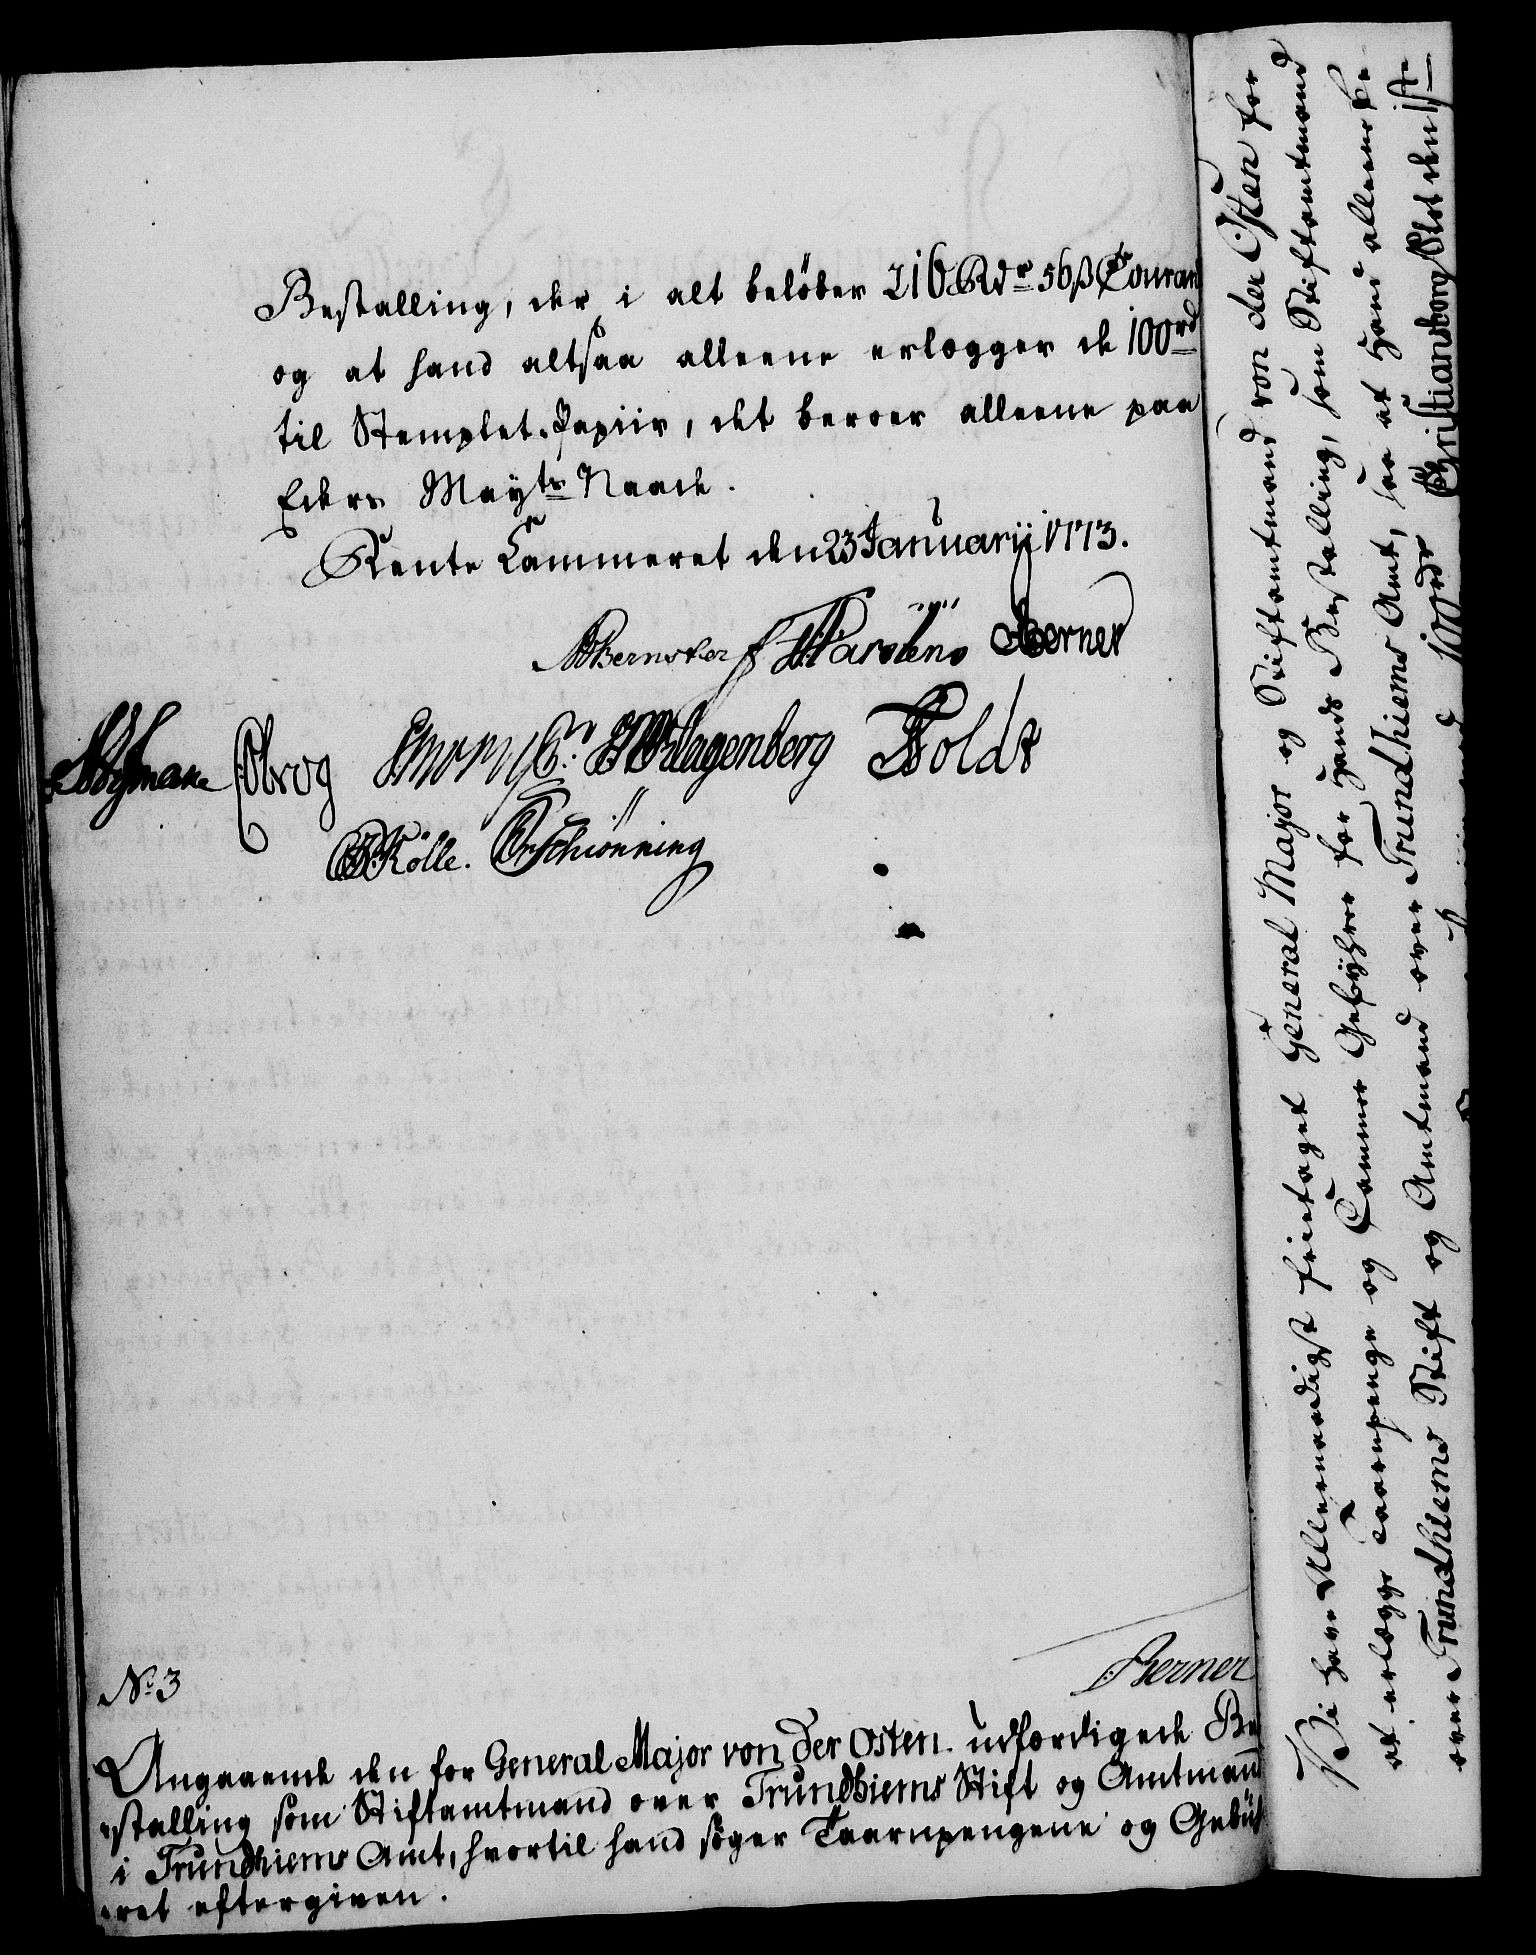 Bestalling, der i alt beløber 216 Rdr 56 ß Couran
og at hand altsaa alleene erlegger de 100 rd
til Stemplet-Papiir, det beroer alleene paa
Eders Mayts Naade.
Rente Cammeret den 23 Januarii 1773.
Berner
Obrog Klagenberg Holdt
Kölle. Schiönning
Berner
No 3
Angaaende den for General Major von der Osten udfærdigede Be
stalling som Stiftamtmand over Trundhiems Stift og Amtmand
i Trundhiems Amt, hvortil hand søger Taarnpengene og Gebüh
ret eftergiven.
Vi have Allernaadigst frietaget General Major og Stiftamtmand von der Osten for
at erlægge Taarnpenge og Cammer Gebyhrer for Hands Bestalling, som Stiftamtmand
over Trundhiems Stift og Amtmand over Trundhiems Amt, saa at Hand alleene be-
100 rdr Christiansborg Slot den 1ste